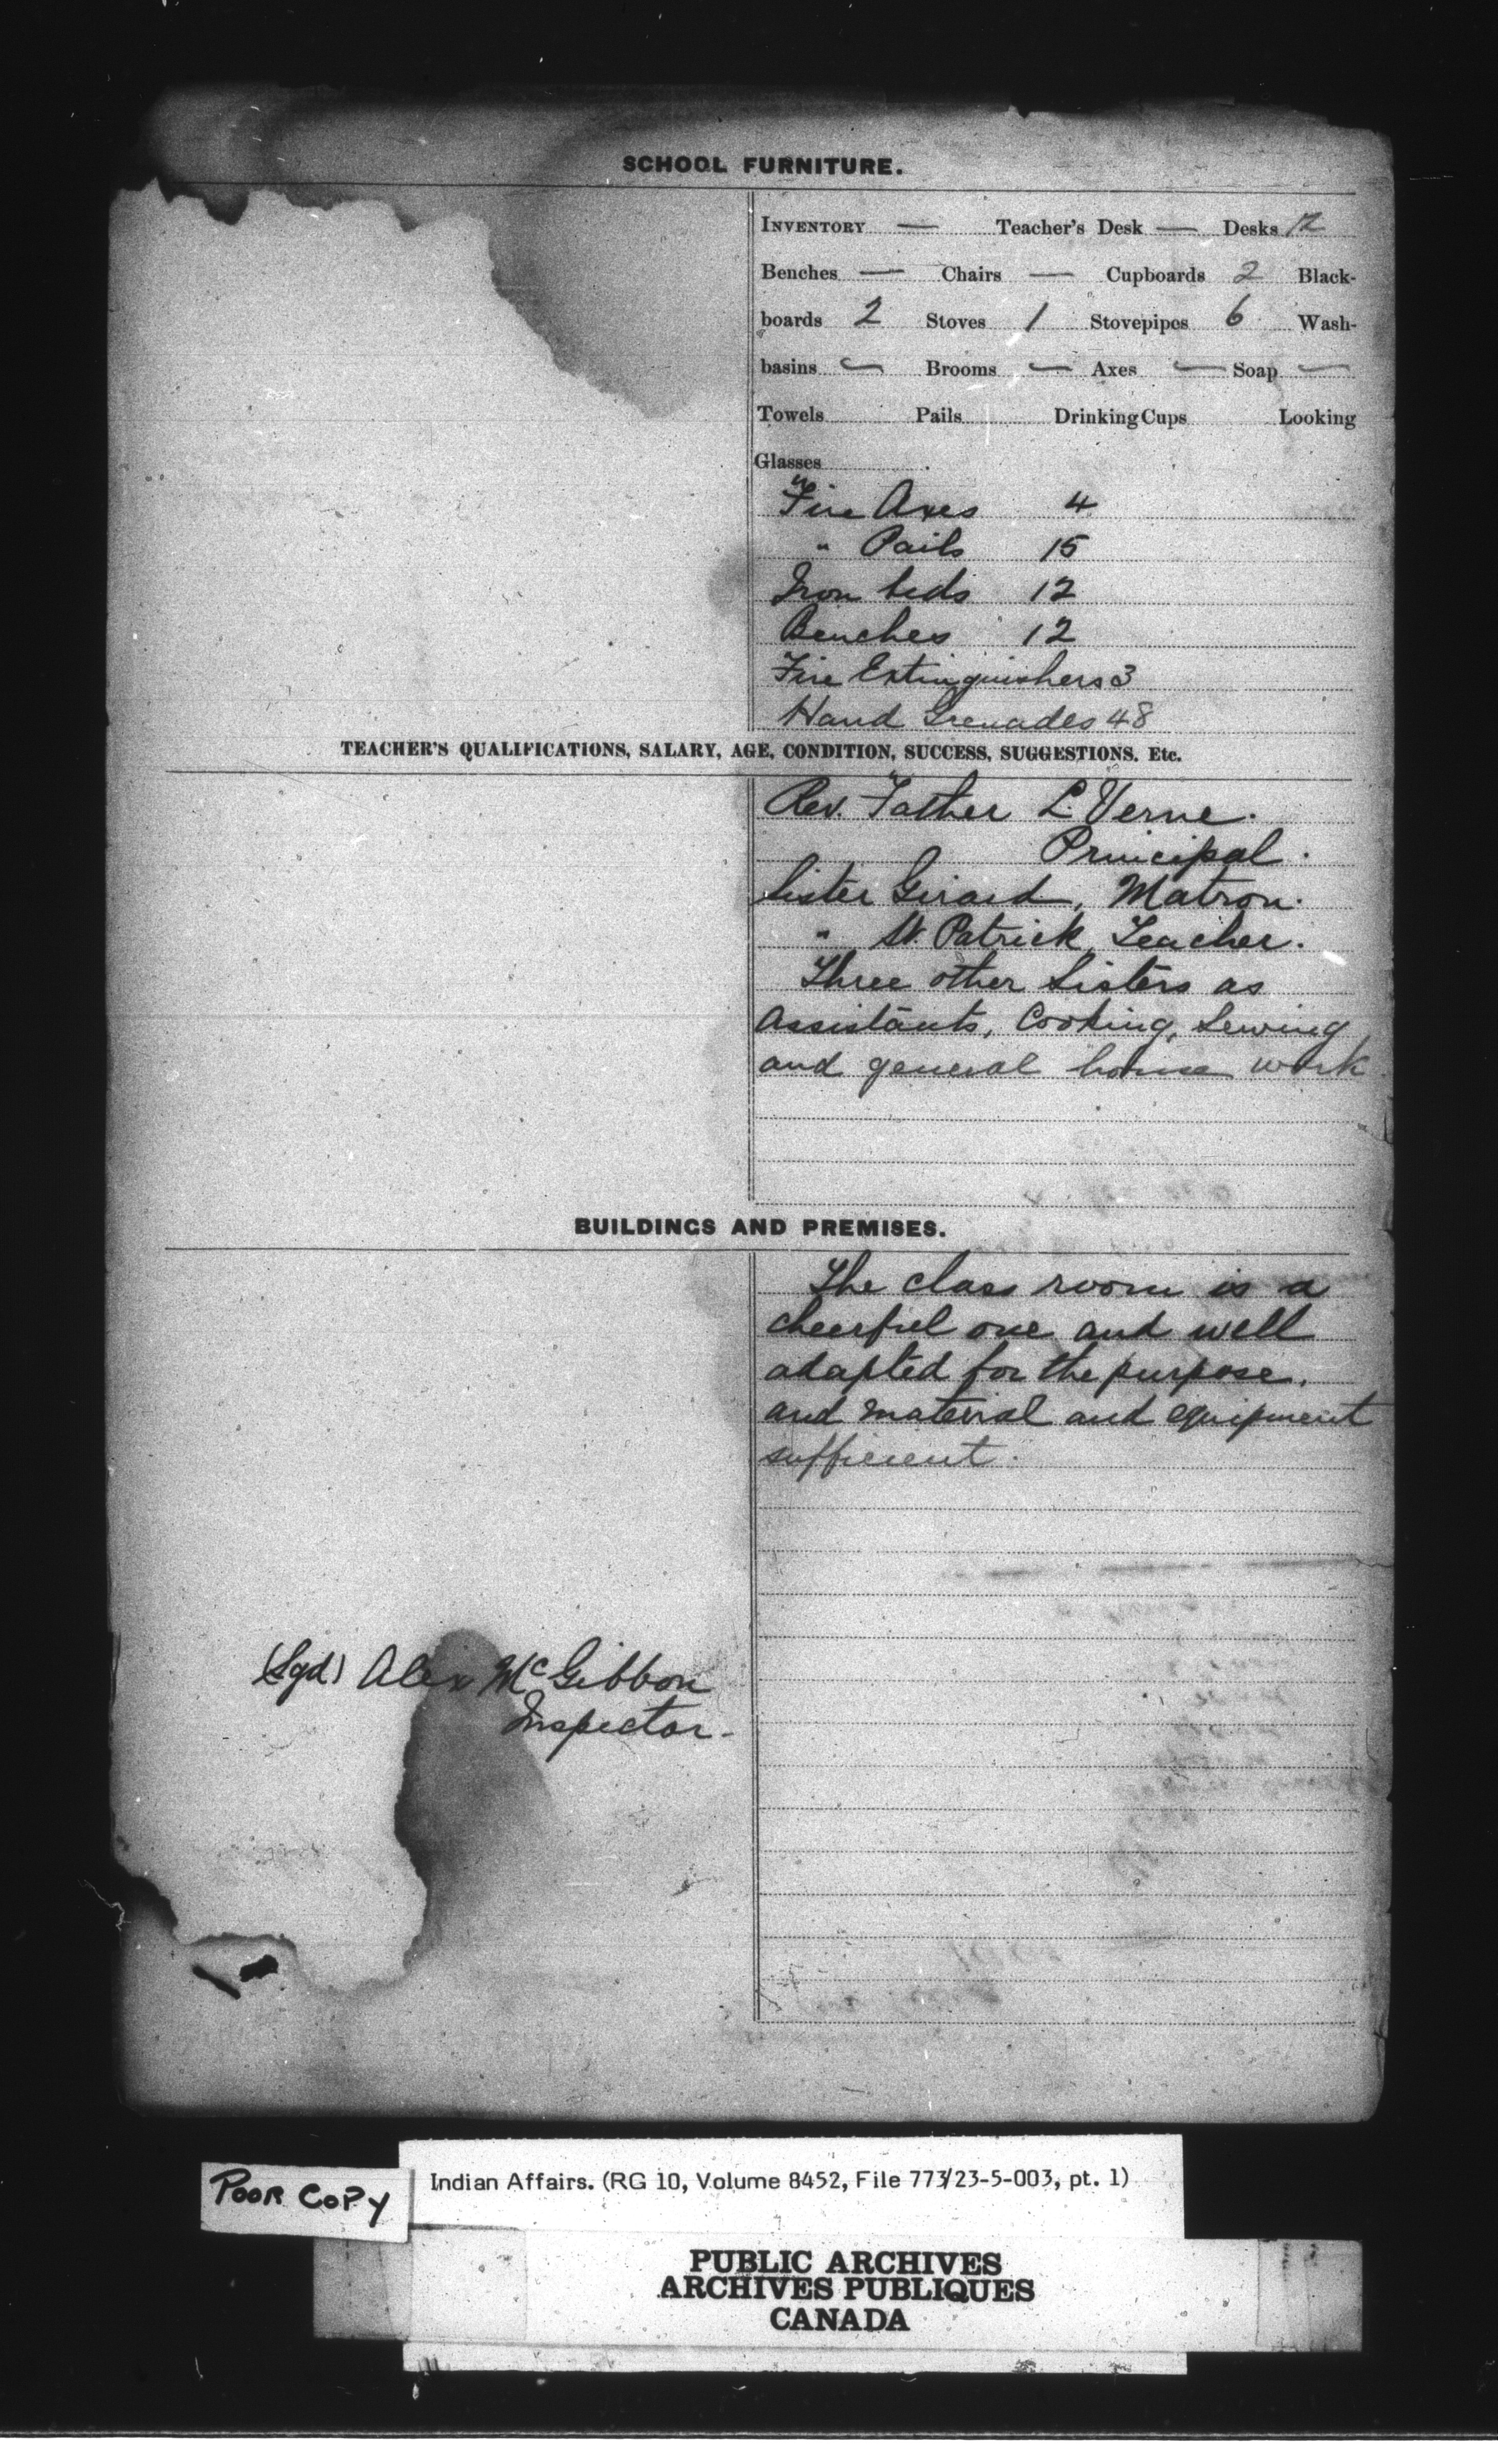 SCHOOL FURNITURE.
INVENTORY — Teacher's Desk — Desks 12
Benches — Chairs — Cupboards 2 Black-
boards 2 Stoves 1 Stovepipes 6 Wash-
basins — Brooms — Axes — Soap —
Towels Pails Drinking Cups Looking
Glasses
Fire Axes 4
" Pails 15
Iron beds 12
Benches 12
Fire Extinguishers 3
Hand Grenades 48
TEACHER'S QUALIFICATIONS, SALARY, AGE, CONDITION, SUCCESS, SUGGESTIONS, Etc.
Rev. Father L. Verne.
Principal.
Sister Girard, Matron.
" St. Patrick, Teacher.
Three other Sisters as
Assistants, Cooking, Sewing
and general house work
BUILDINGS AND PREMISES.
The class room is a
cheerful one and well
adapted for the purpose,
and material and equipment
sufficient.
(Sgd) Alex McGibbon
Inspector-
POOR COPY
Indian Affairs. (RG 10, Volume 8452, File 773/23-5-003, pt. 1)
PUBLIC ARCHIVES
ARCHIVES PUBLIQUES
CANADA